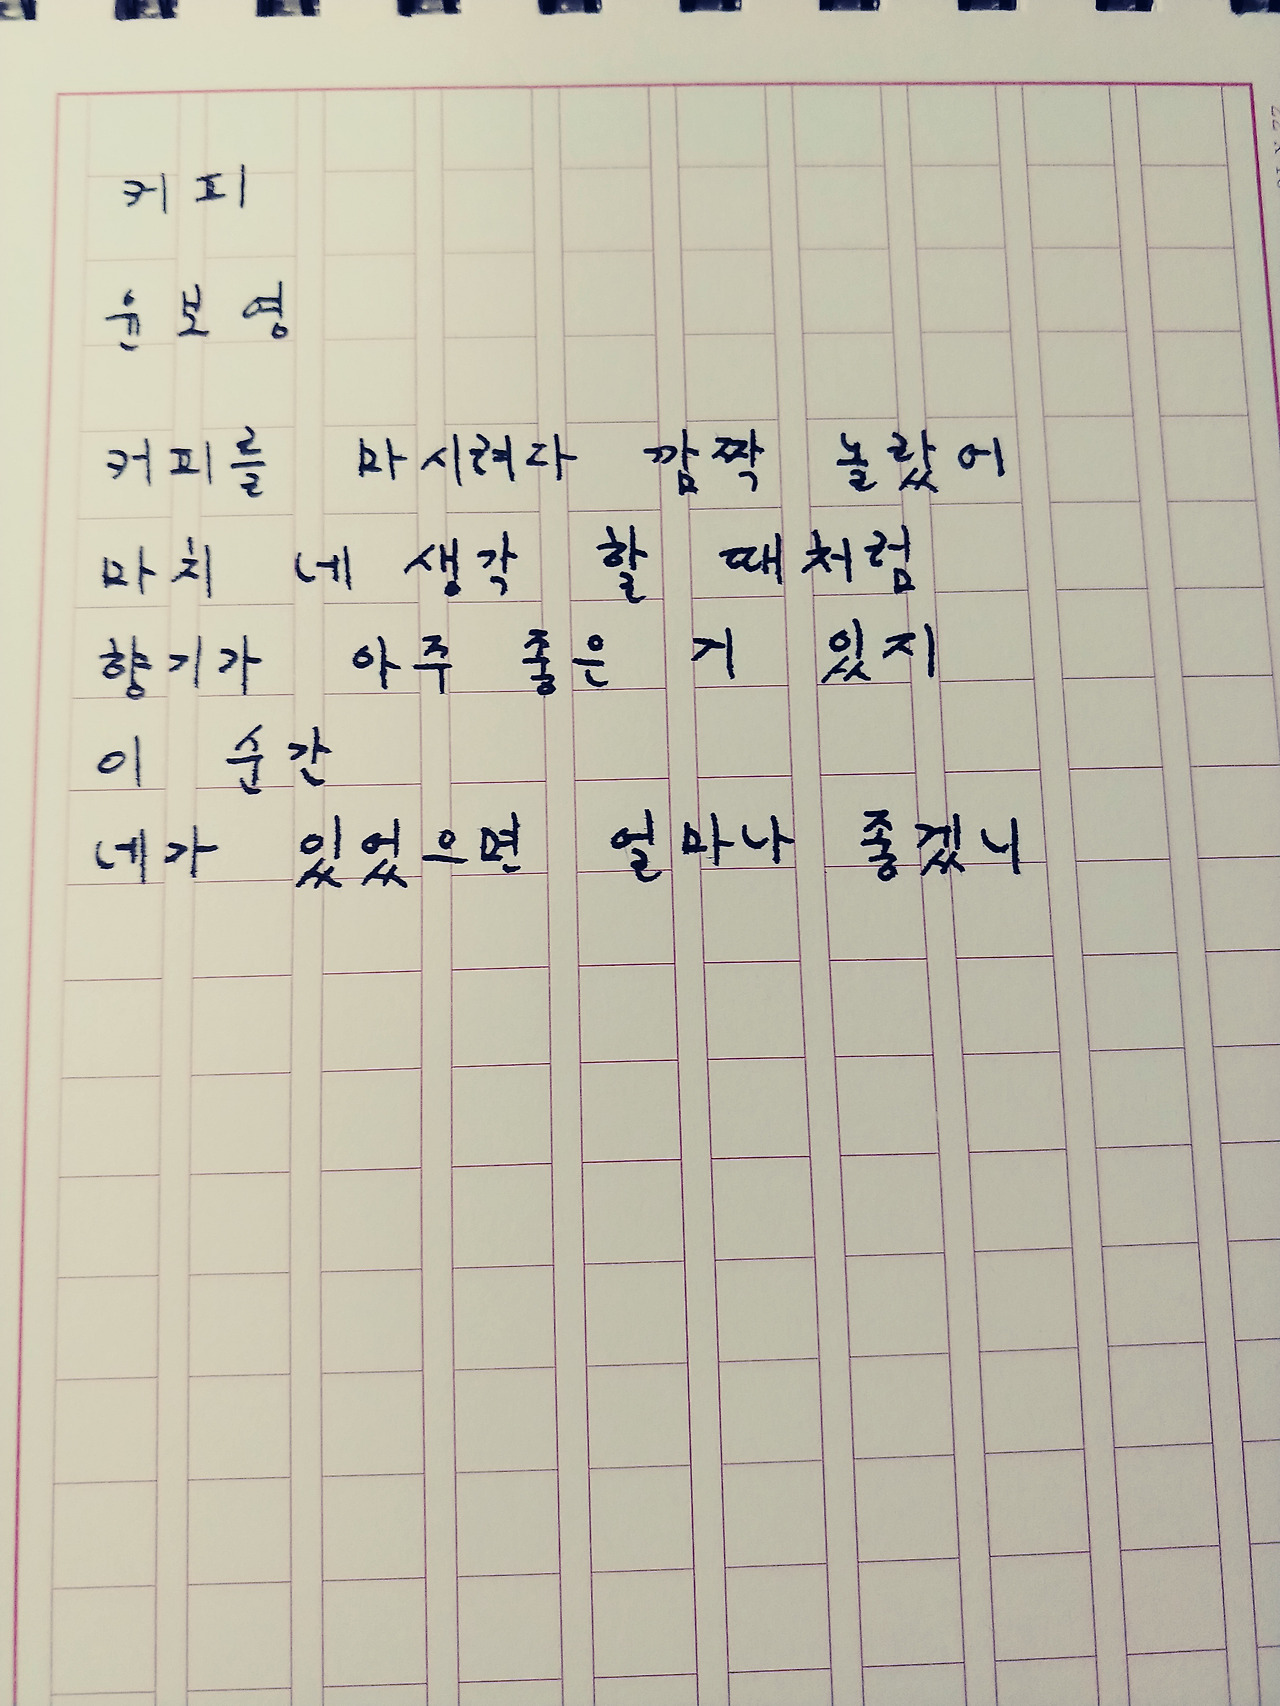 커피
윤보영
커피를 마시려다 깜짝 놀랐어
마치 네 생각 할 때처럼
향기가 아주 좋은 거 있지
이 순간
네가 있었으면 얼마나 좋겠니